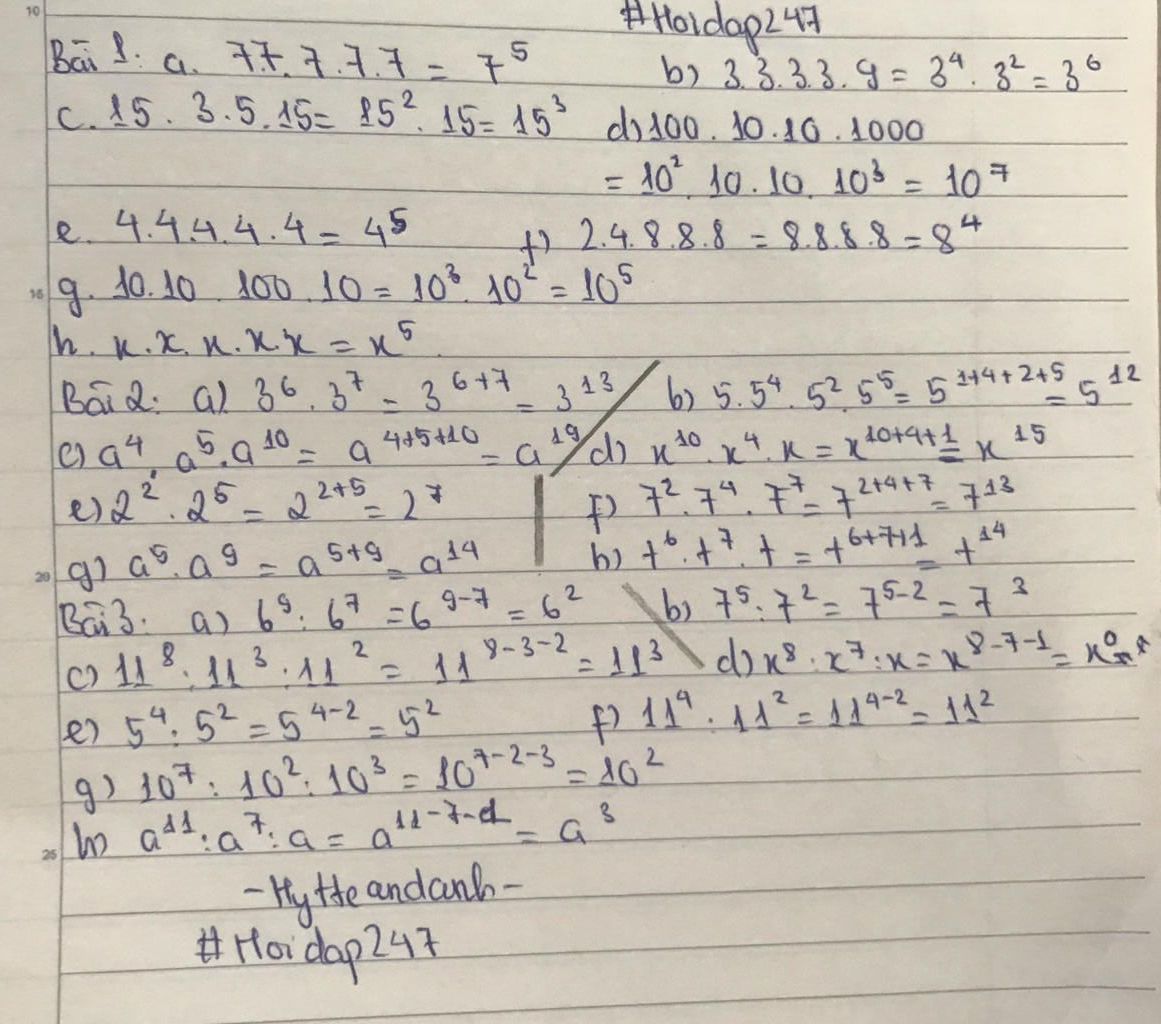 #Hoidap247
Bài 1: a. 7.7.7.7.7 = 7⁵ b) 3.3.3.3.9 = 3⁴.3² = 3⁶
c. 15.3.5.15 = 15².15 = 15³ d) 100.10.10.1000
= 10².10.10.10³ = 10⁷
e. 4.4.4.4.4 = 4⁵ f) 2.4.8.8.8 = 8.8.8.8 = 8⁴
g. 10.10.100.10 = 10³.10² = 10⁵
h. x.x.x.x.x = x⁵
Bài 2: a) 3⁶.3⁷ = 3⁶⁺⁷ = 3¹³ b) 5.5⁴.5².5⁵ = 5¹⁺⁴⁺²⁺⁵ = 5¹²
c) a⁴.a⁵.a¹⁰ = a⁴⁺⁵⁺¹⁰ = a¹⁹ d) x¹⁰.x⁴.x = x¹⁰⁺⁴⁺¹ = x¹⁵
e) 2².2⁵ = 2²⁺⁵ = 2⁷ f) 7².7⁴.7⁷ = 7²⁺⁴⁺⁷ = 7¹³
g) a⁵.a⁹ = a⁵⁺⁹ = a¹⁴ h) t⁶.t⁷.t = t⁶⁺⁷⁺¹ = t¹⁴
Bài 3: a) 6⁹:6⁷ = 6⁹⁻⁷ = 6² b) 7⁵:7² = 7⁵⁻² = 7³
c) 11⁸:11³:11² = 11⁸⁻³⁻² = 11³ d) x⁸:x⁷:x = x⁸⁻⁷⁻¹ = x⁰
e) 5⁴:5² = 5⁴⁻² = 5² f) 11⁴:11² = 11⁴⁻² = 11²
g) 10⁷:10²:10³ = 10⁷⁻²⁻³ = 10²
h) a¹¹:a⁷:a = a¹¹⁻⁷⁻¹ = a³
-Mytteandanh-
#Hoidap247